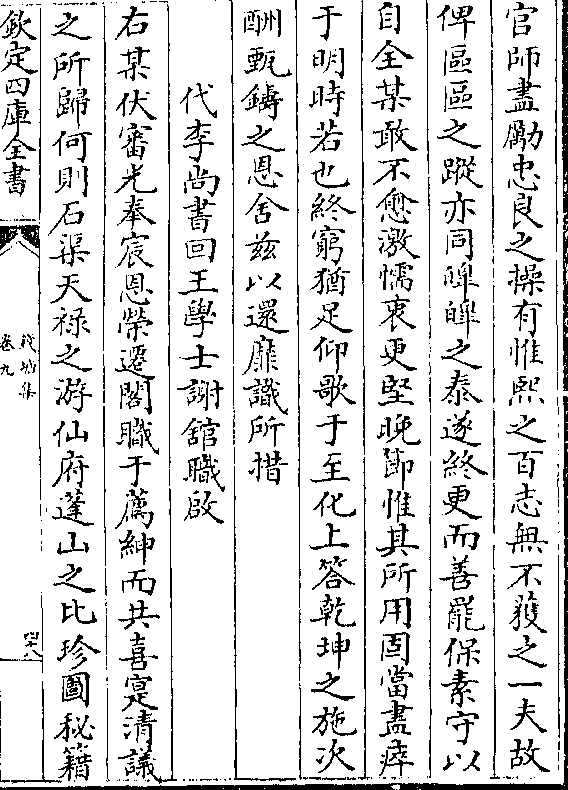 官師盡勵忠良之操有惟熙之百志無不獲之一夫故
俾區區之蹤亦同皥皥之泰遂終更而善罷保素守以
自全某敢不愈激懦衷更堅晚節惟其所用固當盡瘁
于明時若也終窮猶足仰歌于至化上答乾坤之施次
酬甄鑄之恩舍兹以還靡識所措
代李尚書回王學士謝舘職啟
右某伏審光奉宸恩榮遷閣職于薦紳而共喜寔清議
之所歸何則石渠天禄之游仙府蓬山之比珍圖秘籍
欽定四庫全書
卷九